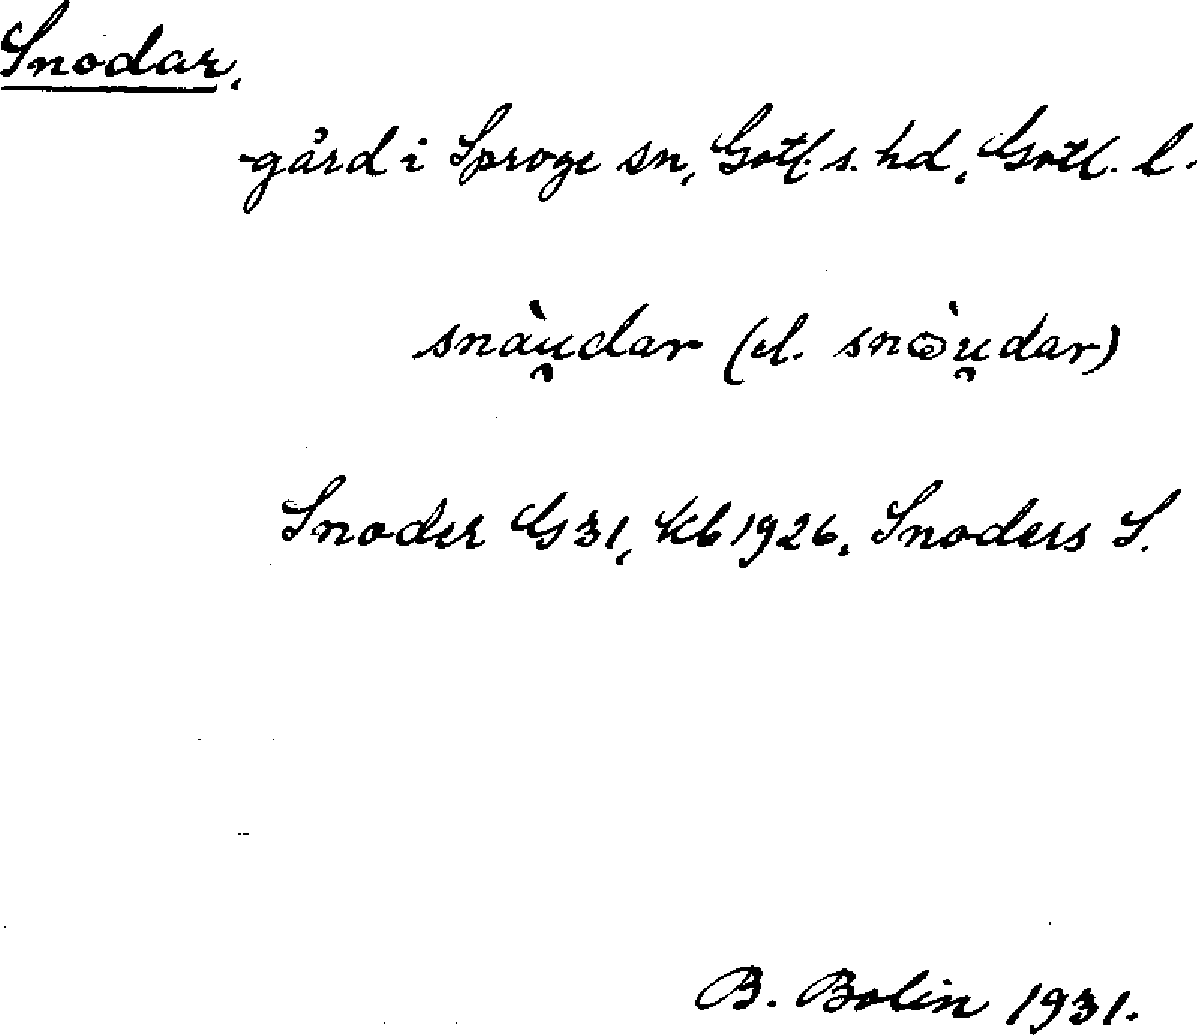 Snodar.
gård i Sproge sn, Gotl. s. hd, Gotl. l.
snàu̯dar (el. snɷ̀u̯dar)
Snoder G 31, Kb 1926, Snoders S.
B. Bolin 1931.